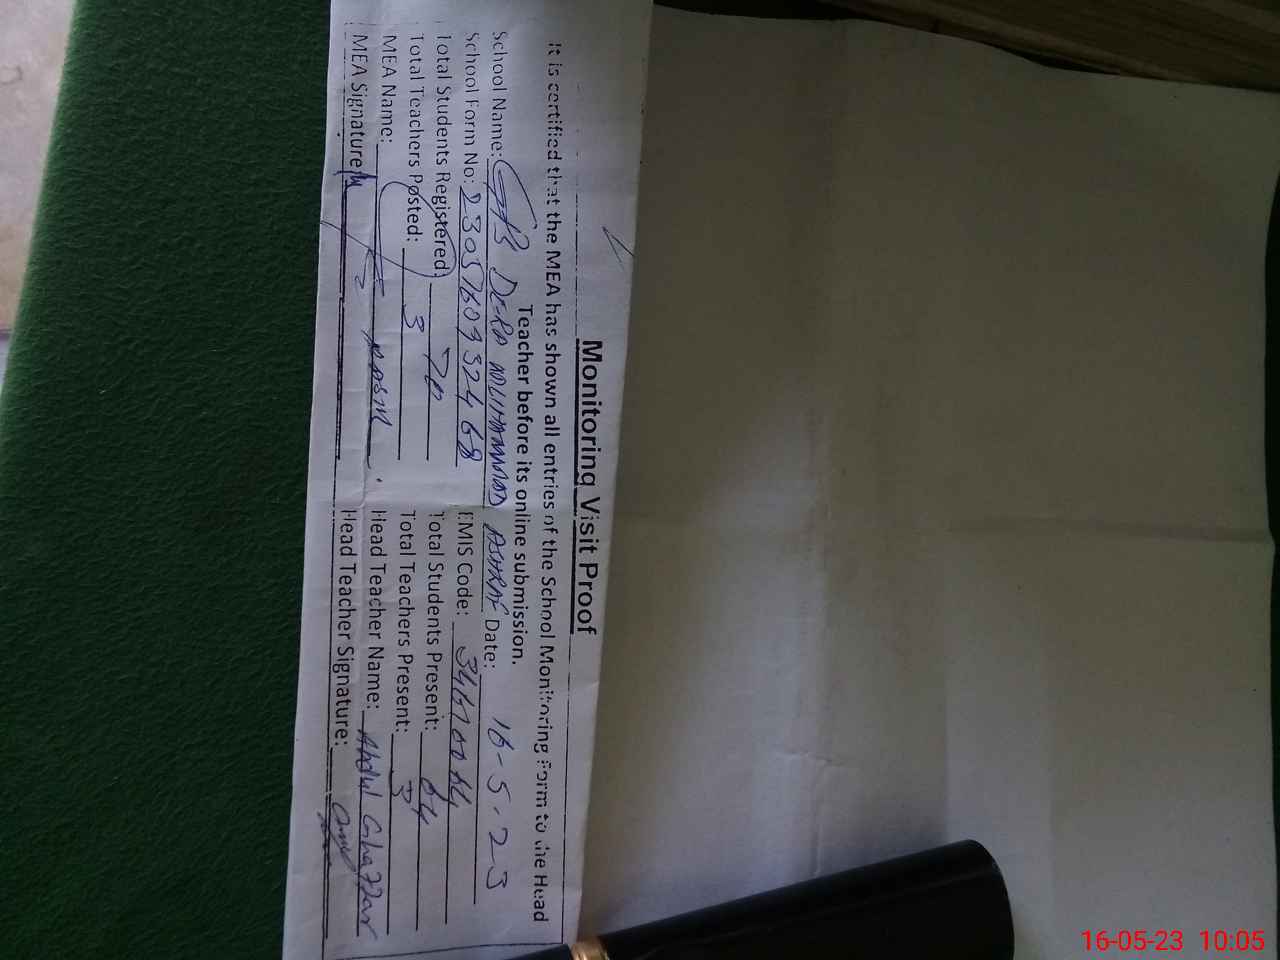 Monitoring Visit Proof
It is certified that the MEA has shown all entries of the School Monitoring Form to the Head
Teacher before its online submission.
School Name: DERA MUHAMMAD ASHRAF Date: 16-5-23
School Form No: EMIS Code:
Total Students Registered: 70 Total Students Present: 64
Total Teachers Posted: 3 Total Teachers Present: 3
MEA Name: Head Teacher Name: Abdul Ghaffar
MEA Signature Head Teacher Signature:
16-05-23 10:05